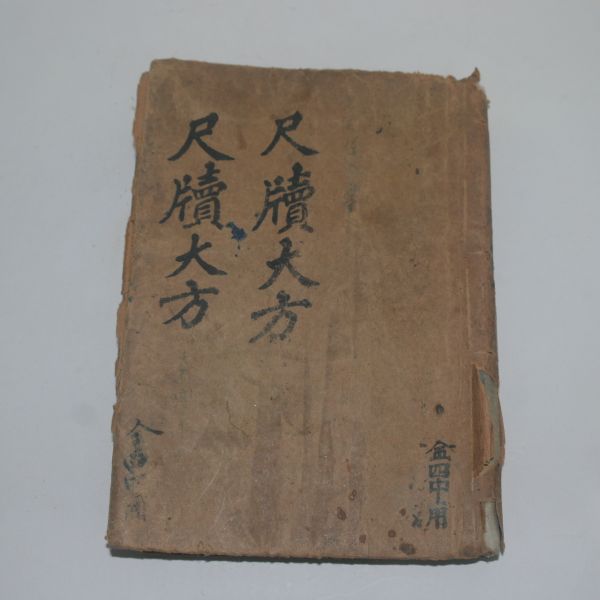 尺牘大方
尺牘大方
金四中用